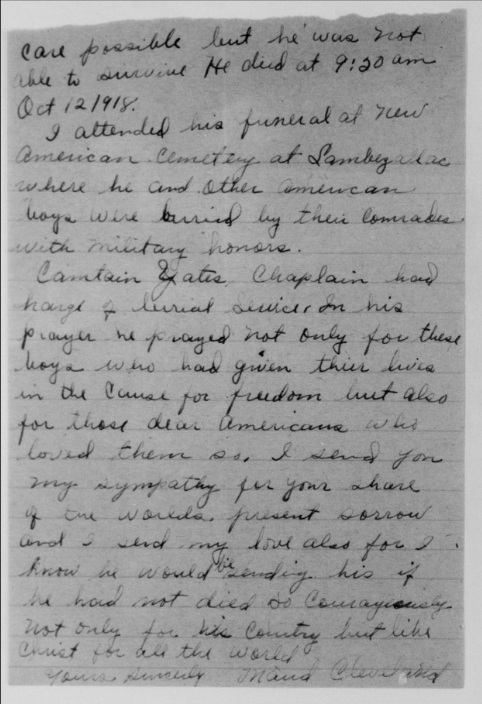 care possible but he was not
able to survive He died at 9:20 am
Oct 12 1918.
I attended his funeral at new
American Cemetery at Lambezallac
where he and other american
boys were burried by their comrades
with military honors.
Camtain Yates, Chaplain had
harge of burial service. In his
prayer he prayed not only for these
boys who had given thier lives
in the cause for freedom but also
for those dear Americans who
loved them so. I send you
my sympathy for your share
of the worlds present sorrow
and I send my love also for I
know he would be sending his if
he had not died so courageously
not only for his country but like
Christ for all the world
Yours sincerely Maud Cleveland